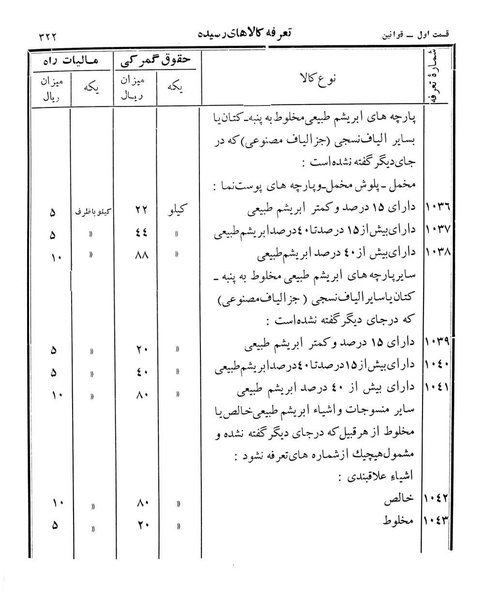 قسمت اول ــ قوانین
تعرفه کالاهای رسیده
۳۲۲
شمارهٔ تعرفه
نوع کالا
حقوق گمرکی
مالیات راه
یکه
میزان ریال
یکه
میزان ریال
پارچه های ابریشم طبیعی مخلوط به پنبه ــ کتان یا
بسایر الیاف نسجی (جز الیاف مصنوعی) که در
جای دیگر گفته نشده است :
مخمل ــ پلوش مخمل ــ و پارچه های پوست نما :
۱۰۳۶ دارای ۱۵ درصد و کمتر ابریشم طبیعی کیلو ۲۲ کیلو با ظرف ۵
۱۰۳۷ دارای بیش از ۱۵ درصد تا ۴۰ درصد ابریشم طبیعی » ۴۴ » ۵
۱۰۳۸ دارای بیش از ۴۰ درصد ابریشم طبیعی » ۸۸ » ۱۰
سایر پارچه های ابریشم طبیعی مخلوط به پنبه ــ
کتان یا سایر الیاف نسجی (جز الیاف مصنوعی)
که در جای دیگر گفته نشده است :
۱۰۳۹ دارای ۱۵ درصد و کمتر ابریشم طبیعی » ۲۰ » ۵
۱۰۴۰ دارای بیش از ۱۵ درصد تا ۴۰ درصد ابریشم طبیعی » ۴۰ » ۵
۱۰۴۱ دارای بیش از ۴۰ درصد ابریشم طبیعی » ۸۰ » ۱۰
سایر منسوجات و اشیاء ابریشم طبیعی خالص یا
مخلوط از هر قبیل که در جای دیگر گفته نشده و
مشمول هیچیك از شماره های تعرفه نشود :
اشیاء علاقبندی :
۱۰۴۲ خالص » ۸۰ » ۱۰
۱۰۴۳ مخلوط » ۲۰ » ۵